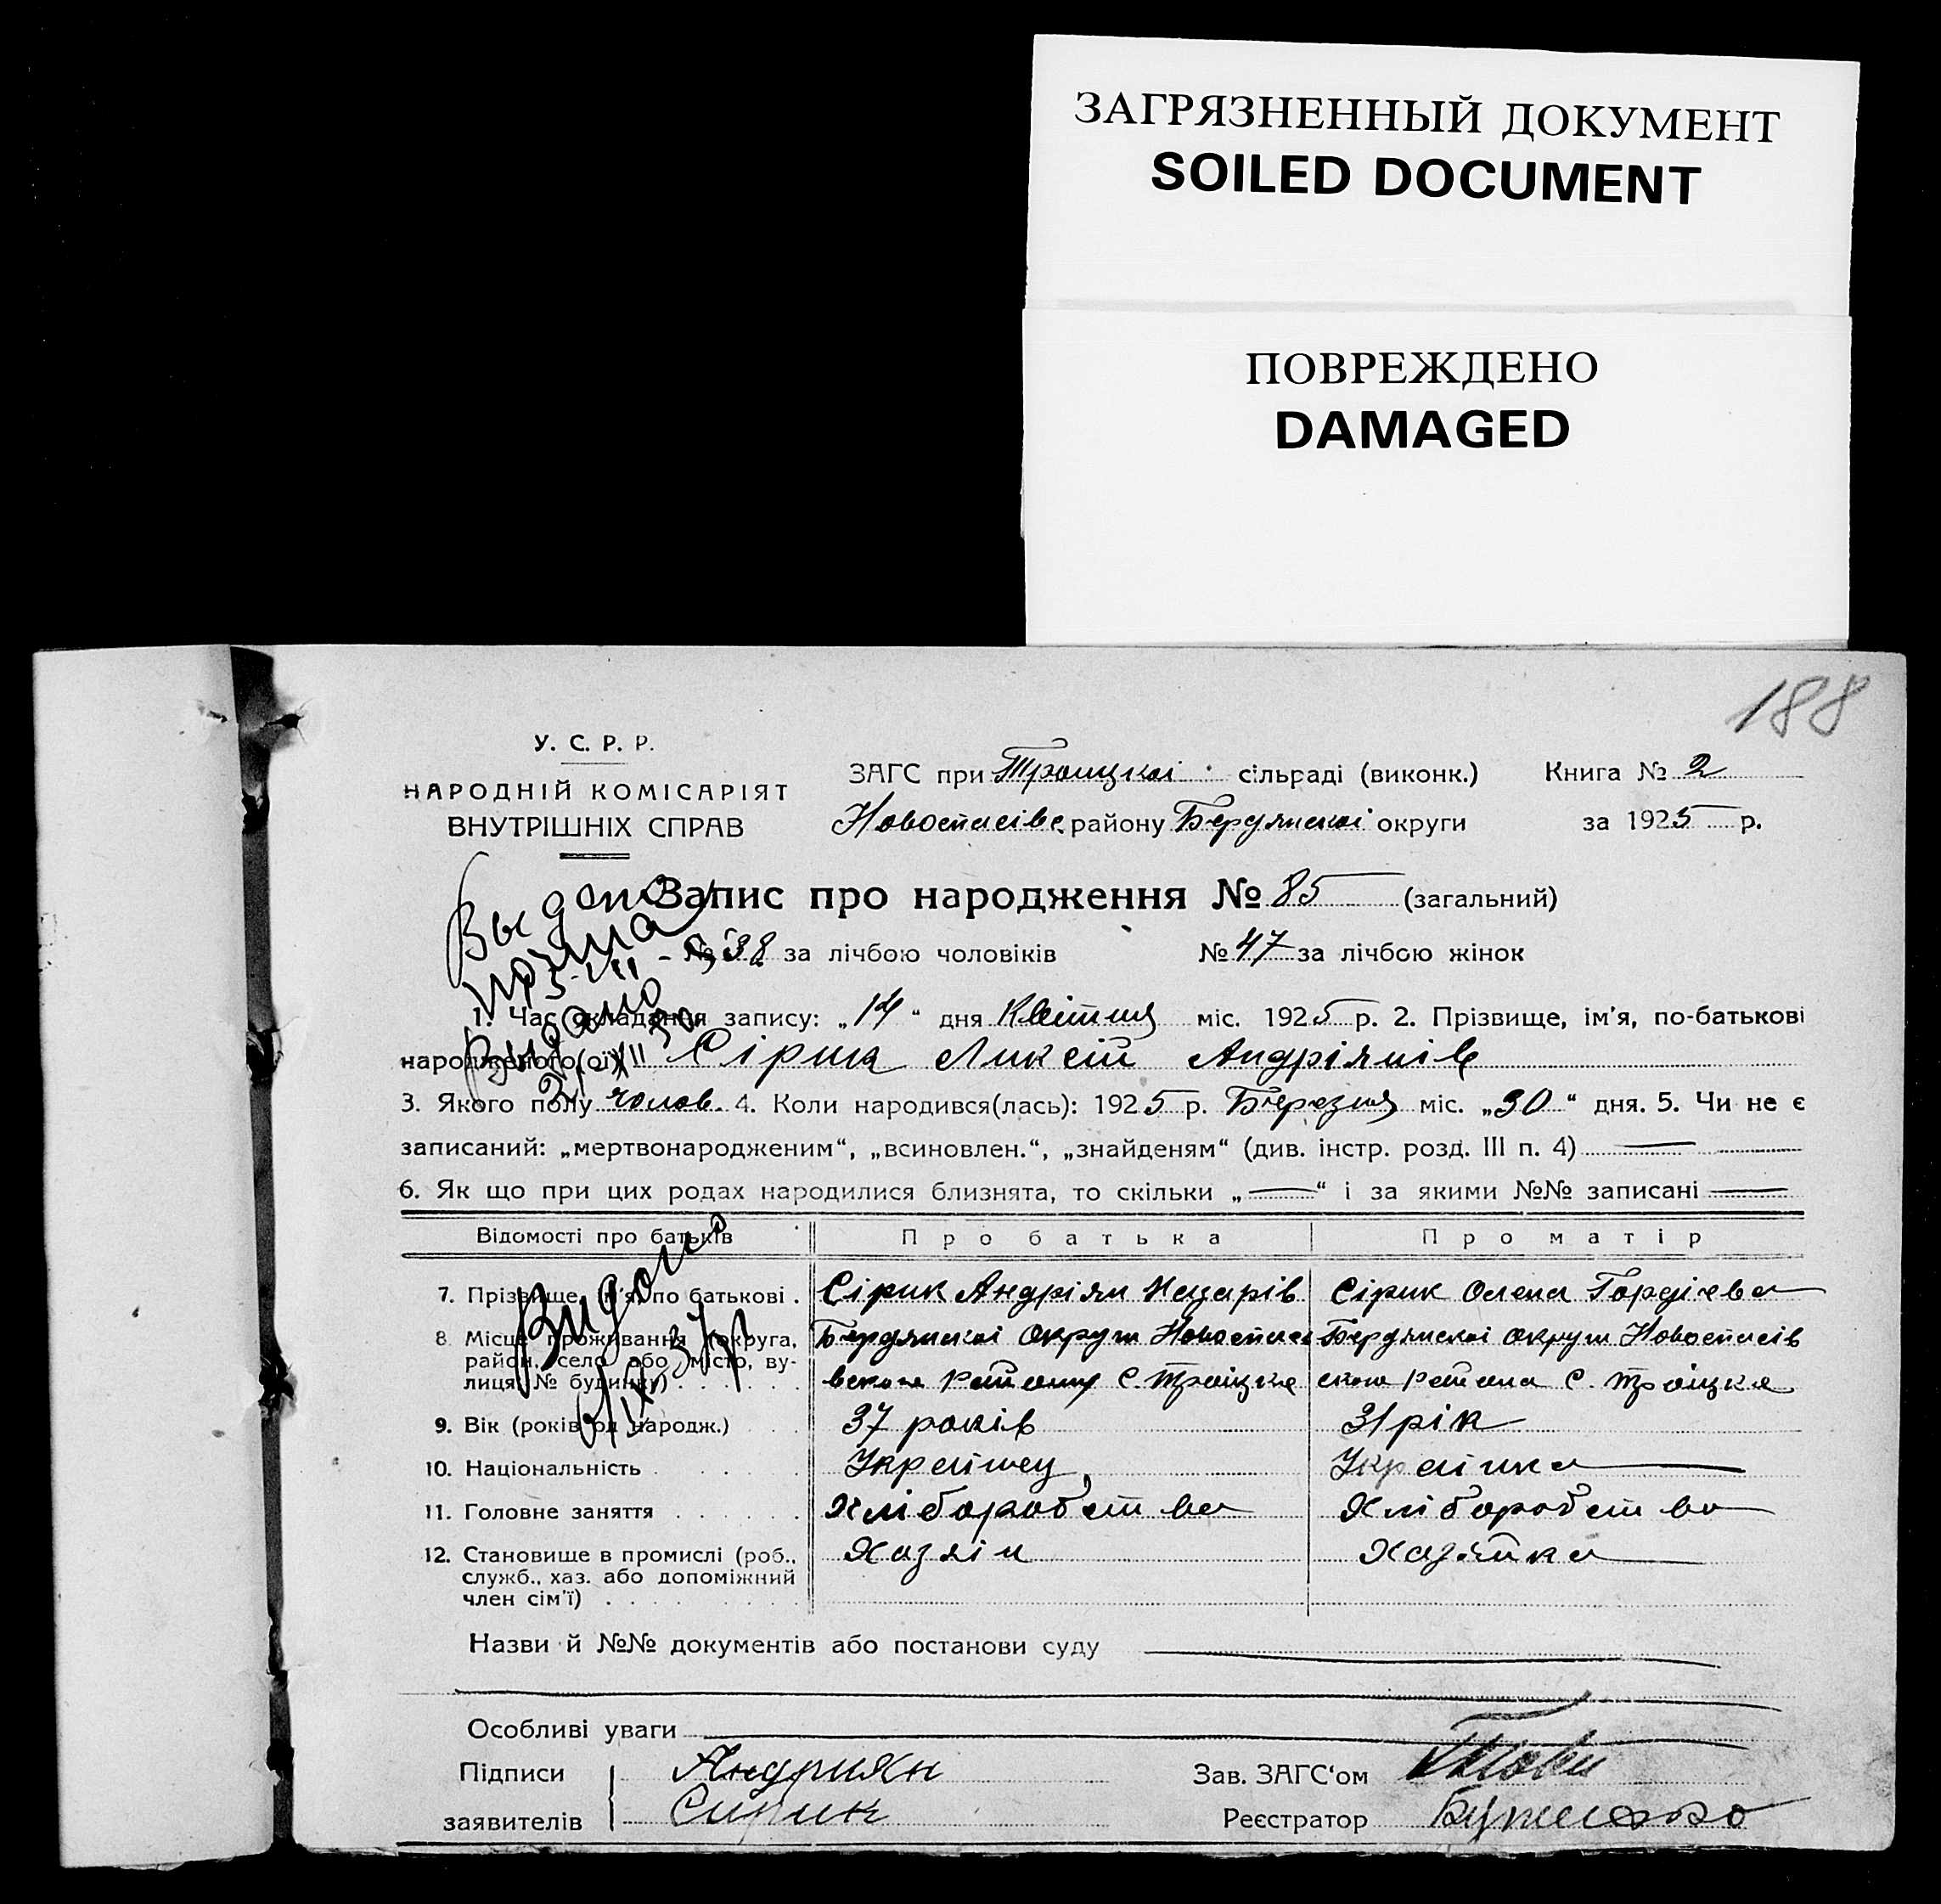 ЗАГРЯЗНЕННЫЙ ДОКУМЕНТ
SOILED DOCUMENT
ПОВРЕЖДЕНО
DAMAGED
188
У. С. Р. Р.
НАРОДНІЙ КОМІСАРІЯТ
ВНУТРІШНІХ СПРАВ
ЗАГС при Троицкої сільраді (виконк.) Книга № 2
Новоспасівс. району Бердянскої округи за 1925 р.
Запис про народження № 85 (загальний)
№ 38 за лічбою чоловіків № 47 за лічбою жінок
Выдано
Видано
1. Час складання запису: „14“ дня Квітня міс. 1925 р. 2. Прізвище, ім'я, по-батькові
народженого(ої) Сірик Ликсій Андріянів
3. Якого полу чолов. 4. Коли народився(лась): 1925 р. Березня міс. „30“ дня. 5. Чи не є
записаний: „мертвонародженим“, „всиновлен.“, „знайденям“ (див. інстр. розд. III п. 4)
6. Як що при цих родах народилися близнята, то скільки „—“ і за якими №№ записані —
Відомості про батьків Про батька Про матір
7. Прізвище, ім'я, по батькові . Сірик Андріян Назарів Сірик Олена Гордієва
8 Місце проживання (округа, Бердянскої округи Новоспасі Бердянскої округи Новоспасів
район, село або місто, ву-
лиця, № будинку) вского району С. Троїцке ского района С. Троїцке
Видано
9. Вік (років од народж.) 37 років 31 рік
10. Національність Украінец Украінка
11. Головне заняття Хліборобство Хліборобство
12. Становище в промислі (роб., Хазяін Хазяйка
служб., хаз. або допоміжний
член сім'ї)
Назви й №№ документів або постанови суду
Особливі уваги
Підписи Андриян Зав. ЗАГС'ом
заявителів Сирик Реєстратор